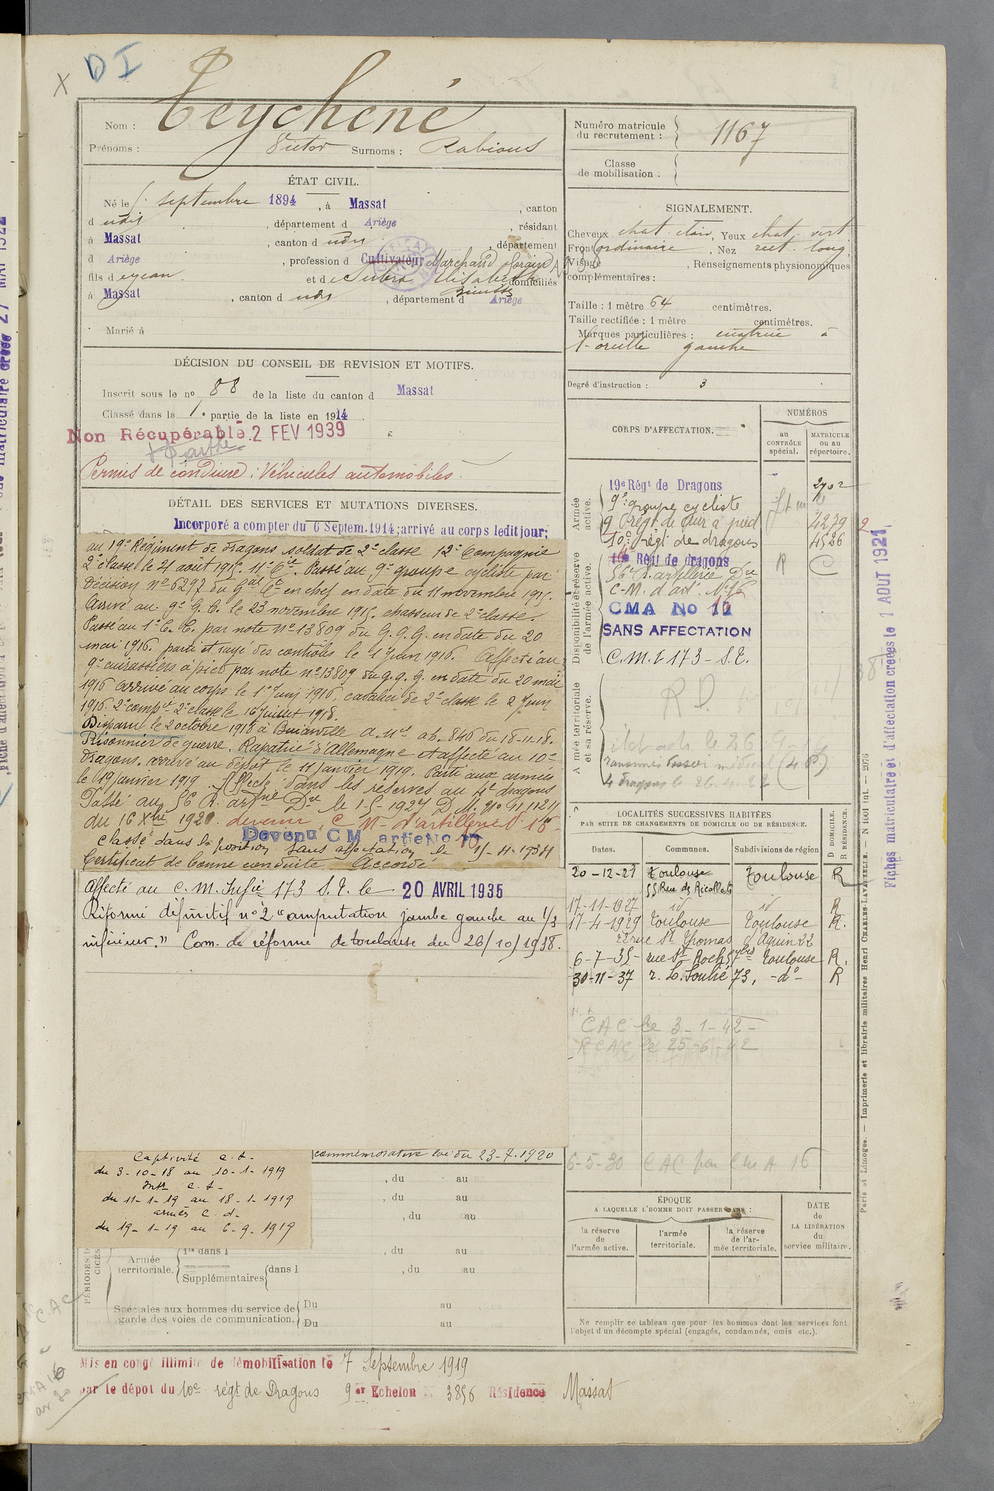 X
DI
Nom : Teychené
Prénoms : Victor Surnoms : Rabious
Numéro matricule du recrutement : 1167
Classe de mobilisation :
ÉTAT CIVIL.
Né le septembre 1894, à Massat, canton
d udis, département d Ariège, résidant
à Massat, canton d udis, département
d Ariège, profession d Cultivateur Marchand
fils d eycan et de domiciliés
à Massat, canton d udis, département d Ariège
Marié à
SIGNALEMENT.
Cheveux chat. clair, Yeux chat. vert
Front ordinaire, Nez rect. long
Visage, Renseignements physionomiques
complémentaires :
Taille : 1 mètre 64 centimètres.
Taille rectifiée : 1 mètre centimètres.
Marques particulières : cicatrice à
l'oreille gauche
Degré d'instruction : 3
DÉCISION DU CONSEIL DE REVISION ET MOTIFS.
Inscrit sous le nº 88 de la liste du canton d Massat
Classé dans la 1e partie de la liste en 1914
Non Récupérable. 2 FEV 1939
Permis de conduire : Véhicules automobiles.
DÉTAIL DES SERVICES ET MUTATIONS DIVERSES.
Incorporé a compter du 6 Septem. 1914; arrivé au corps ledit jour;
au 19e Régiment de dragons soldat de 2e classe 12e Compagnie
2e classe le 21 août 1915. 11e Cie. Passé au 9e groupe cycliste par
décision nº 6297 du Gal Ct en chef en date du 11 novembre 1915.
Arrivé au 9e G. C. le 23 novembre 1915. chasseur de 2e classe.
Passé au 1e C. R. par note Nº 13809 du G. Q. G. en date du 20
mai 1916. parti et rayé des contrôles le 1 Juin 1916. Affecté au
9e cuirassiers à pied par note nº 13809 du G. Q. G. en date du 20 mai
1916 Arrivé au corps le 1er Juin 1916 cavalier de 2e classe le 2 Juin
1916. 2e comp. 2e classe le 16 Juillet 1918.
Disparu le 2 octobre 1918 à a. m. ab. 846 du 18-11-18.
Prisonnier de guerre. Rapatrié d'Allemagne et affecté au 10e
Dragons. arrivé au dépôt le 11 janvier 1919. Parti aux armées
le 19 janvier 1919. Affecté dans les réserves au 4e dragons
Passé au 56 R. artie Dre le 1-5-1927
du 16 Xbre 1920. devenu C. M. d'artillerie nº 16
Devenu C M artie No
classé dans la position sans affectation le 15-11-1934
Certificat de bonne conduite Accordé
Affecté au C. M. Infie 173 S. E. le 20 AVRIL 1935
Réformé définitif nº 2 "amputation jambe gauche au 1/3
inférieur." Com. de réforme de toulouse du 26/10/1938.
commémorative loi du 23-7-1920
Captivité C. d.
du 3-10-18 au 10-1-1919
Intr C. d.
du 11-1-19 au 18-1-1919
armées C. d.
du 19-1-19 au 6-9-1919
, du au
, du au
, du au
Armée territoriale.
1re dans l , du au
Supplémentaires dans l , du au
Spéciales aux hommes du service de garde des voies de communication.
Du au
Du au
CORPS D'AFFECTATION.
NUMÉROS
au CONTRÔLE spécial.
MATRICULE ou au répertoire.
Armée active.
19e Régt de Dragons
9e groupe cycliste
9 régt de cuir à pied 4279
10e régt de dragons 4526
Disponibilité et réserve de l'armée active.
Régt de dragons R C
56 R. artillerie Dre
C-M. d'art. Nº 16
CMA No
SANS AFFECTATION
C. M. I 173 - S. E.
Armée territoriale et sa réserve.
R. D.
LOCALITÉS SUCCESSIVES HABITÉES
PAR SUITE DE CHANGEMENTS DE DOMICILE OU DE RÉSIDENCE.
Dates. Communes. Subdivisions de région
D DOMICILE.
R RÉSIDENCE.
20-12-21 Toulouse Toulouse R
55 Rue des Récollets
17-11-1927 id id R
17-4-1929 Toulouse Toulouse R.
22 rue St Thomas d'Aquin 22
6-7-35 - rue St Roch Toulouse R.
30-11-37 r. L. Soulié 73, -dº- R
CAC le 3-1-42-
RCAC le 25-6-42
6-5-30 CAC par CMA 16
ÉPOQUE
A LAQUELLE L'HOMME DOIT PASSER DANS :
la réserve de l'armée active.
l'armée territoriale.
la réserve de l'armée territoriale.
DATE de LA LIBÉRATION du service militaire.
Ne remplir ce tableau que pour les hommes dont les services font
l'objet d'un décompte spécial (engagés, condamnés, omis etc.).
Mis en congé illimité de démobilisation le 7 Septembre 1919
par le dépôt du 10e régt de Dragons 9e Echelon N 3856 Résidence Massat
Fiches matriculaire et d'affectation créées le 1 AOUT 1921
Paris et Limoges. — Imprimerie et librairie militaires Henri CHARLES-LAVAUZELLE.